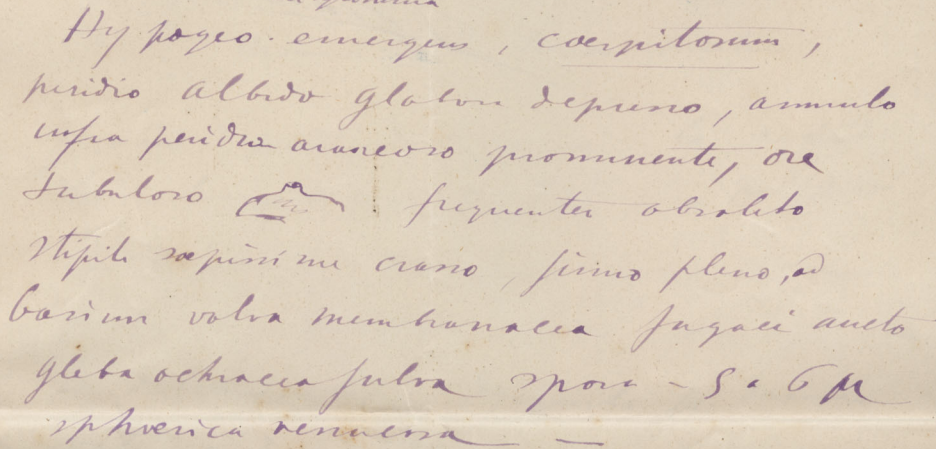 Hypogeo emergens, coespitosum,
peridio albido globoso depresso, annulo
infra peridio araneoso prominente, ore
tubuloso frequenter obsoleto
stipite sœpissime crasso, firmo pleno, ad
basim volva membranacea fugaci aucto
gleba ochracea fulva spora - 5 a 6 µ
sphœrica